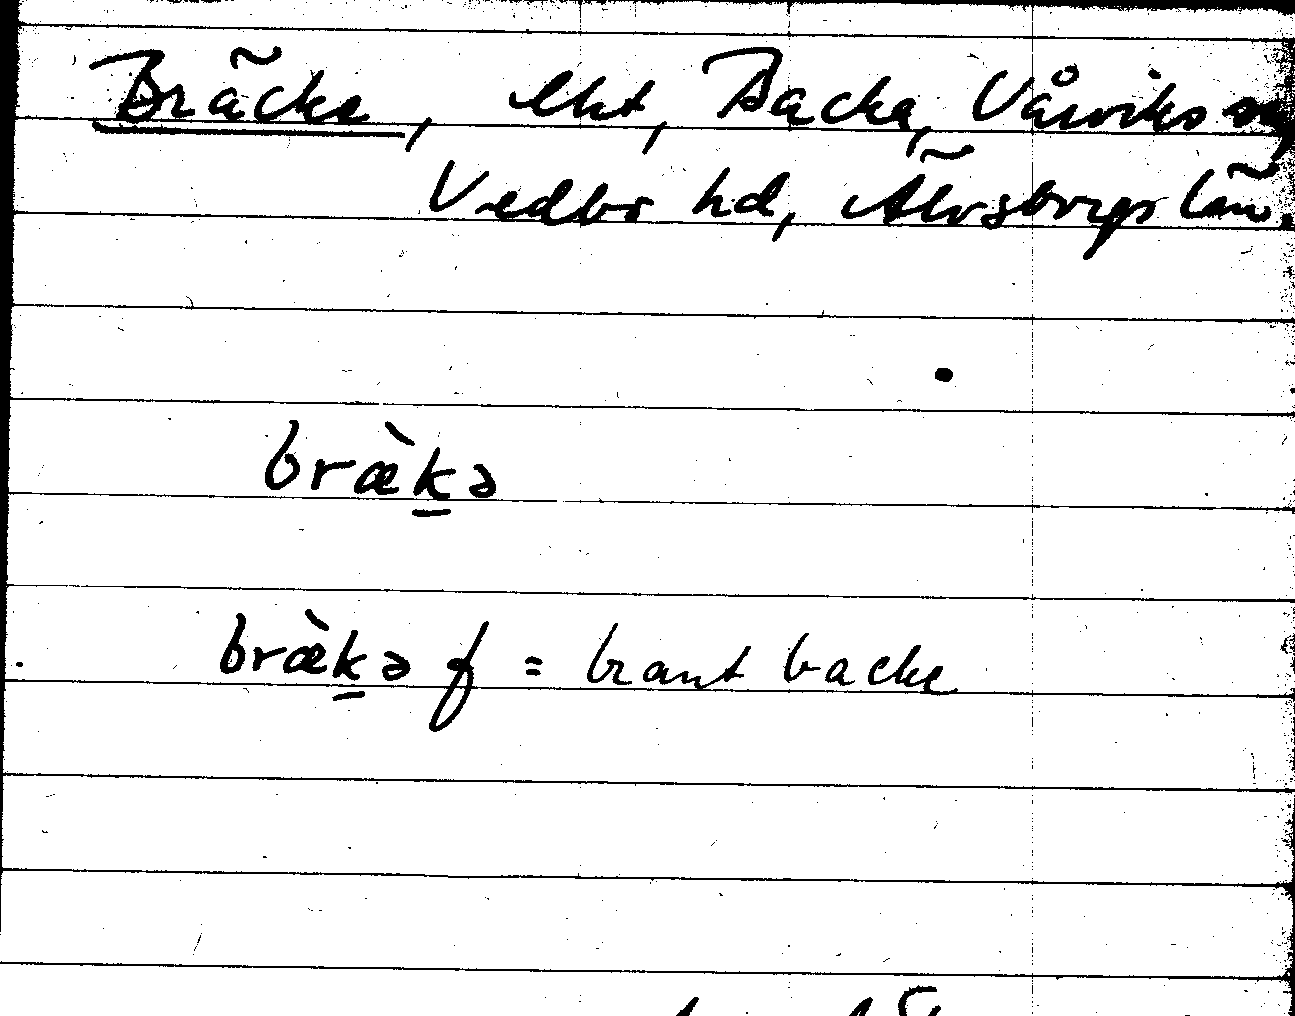 Bräcke, lht, Backa, Vårviks sn,
Vedbo hd, Älvsborgs län.
bræ̀k̲ə
bræ̀k̲ə f = brant backe